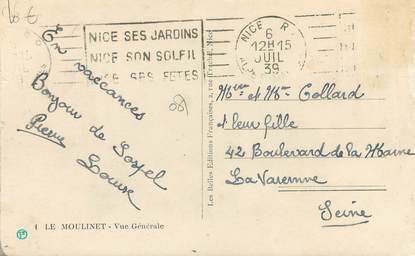 16 €
NICE SES JARDINS
NICE SON SOLEIL
NICE SES FETES
NICE R
6
12H15
JUIL
39
En vaccances
Bonjour de Sospel
Pierre
Louise
(08)
Mr et Mme Collard
et leur fille
42 Boulevard de la Marne
La Varenne
Seine
Les Belles Editions Françaises, 2, rue
1 LE MOULINET - Vue Générale